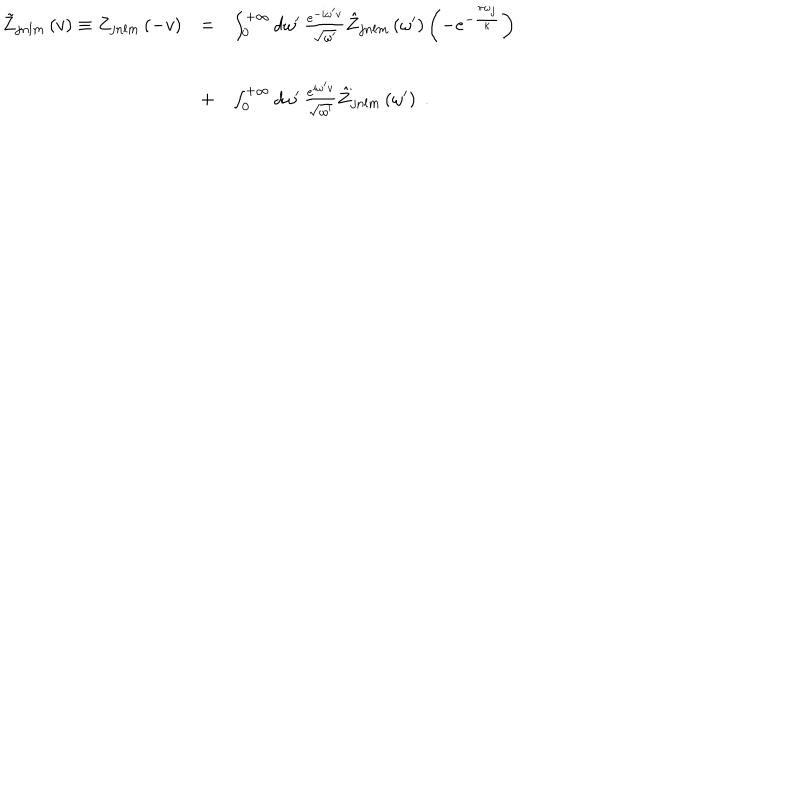 \tilde{Z}_{jnlm}(v) \equiv Z_{jnlm}(-v) = \int_0^{+\infty} d\omega' \frac{e^{-i\omega' v}}{\sqrt{\omega'}} \hat{Z}_{jnlm}(\omega') \left( -e^{-\frac{\pi\omega_j}{\kappa}} \right)
+ \int_0^{+\infty} d\omega' \frac{e^{i\omega' v}}{\sqrt{\omega'}} \hat{Z}_{jnlm}(\omega') .